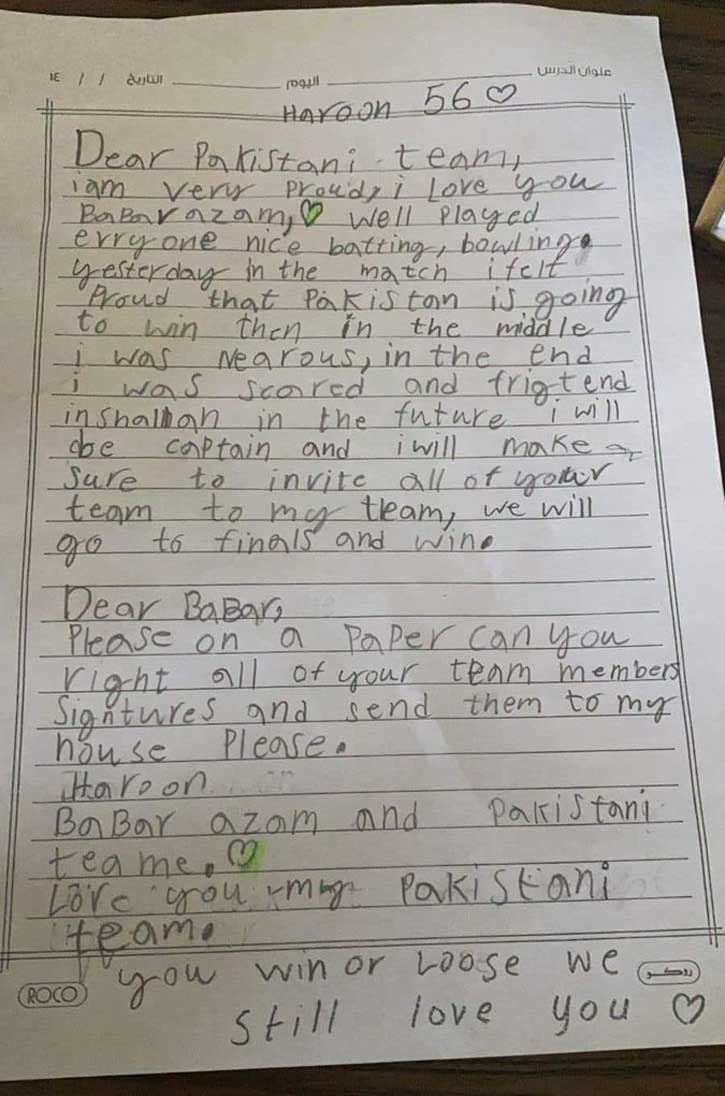 عنوان الدرس اليوم التاريخ / / ١٤
Haroon 56♡
Dear Pakistani team,
i am very proud, i Love you
BaBar azam,♡ well Played
erryone nice batting, bowling.
yesterday in the match i felt
Proud that Pakistan is going
to win then in the middle
i was Nearous, in the end
i was scared and frigtend
inshallah in the future i will
be captain and i will make
sure to invite all of your
team to my team, we will
go to finals and win.
Dear BaBar,
Please on a PaPer can you
right all of your team members
Signtures and send them to my
house Please.
Haroon
BaBar azam and Pakistani
teame.♡
Love you my Pakistani
team.
you win or Loose we
still love you ♡
ROCO روكو